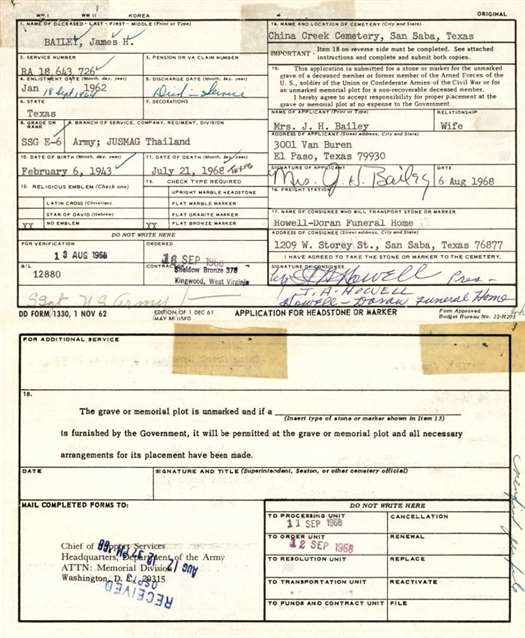 WW I
WW II
KOREA
ORIGINAL
1. NAME OF DECEASED - LAST - FIRST - MIDDLE (Print or Type)
BAILEY, James H.
14. NAME AND LOCATION OF CEMETERY (City and State)
China Creek Cemetery, San Saba, Texas
IMPORTANT - Item 18 on reverse side must be completed. See attached
instructions and complete and submit both copies.
2. SERVICE NUMBER
RA 18 643 726
3. PENSION OR VA CLAIM NUMBER
15. This application is submitted for a stone or marker for the unmarked
grave of a deceased member or former member of the Armed Forces of the
U.S., soldier of the Union or Confederate Armies of the Civil War or for
an unmarked memorial plot for a non-recoverable deceased member.
I hereby agree to accept responsibility for proper placement at the
grave or memorial plot at no expense to the Government.
4. ENLISTMENT DATE (Month, day, year)
Jan 1962
18 Sept 1964
5. DISCHARGE DATE (Month, day, year)
Died in Service
6. STATE
Texas
7. DECORATIONS
NAME OF APPLICANT (Print or Type)
RELATIONSHIP
Mrs. J. H. Bailey
Wife
8. GRADE OR RANK
9. BRANCH OF SERVICE, COMPANY, REGIMENT, DIVISION
SSG E-6
Army; JUSMAG Thailand
ADDRESS OF APPLICANT (Street address, City and State)
3001 Van Buren
El Paso, Texas 79930
10. DATE OF BIRTH (Month, day, year)
February 6, 1943
11. DATE OF DEATH (Month, day, year)
July 21, 1968
SIGNATURE OF APPLICANT
DATE
Mrs. J. H. Bailey
6 Aug 1968
12. RELIGIOUS EMBLEM (Check one)
13. CHECK TYPE REQUIRED
UPRIGHT MARBLE HEADSTONE
16. FREIGHT STATION
LATIN CROSS (Christian)
FLAT MARBLE MARKER
STAR OF DAVID (Hebrew)
FLAT GRANITE MARKER
XX NO EMBLEM
XX FLAT BRONZE MARKER
17. NAME OF CONSIGNEE WHO WILL TRANSPORT STONE OR MARKER
Howell-Doran Funeral Home
DO NOT WRITE HERE
ADDRESS OF CONSIGNEE (Street address, City and State)
1209 W. Storey St., San Saba, Texas 76877
FOR VERIFICATION
13 AUG 1968
ORDERED
16 SEP 1968
I HAVE AGREED TO TAKE THE STONE OR MARKER TO THE CEMETERY.
B/L
12880
CONTRACTOR
Sheldow Bronze 378
Kingwood, West Virginia
SIGNATURE OF CONSIGNEE
Howell Pres-
J. A. HOWELL
Howell-Doran Funeral Home
SSgt US Army
DD FORM 1330, 1 NOV 62
EDITION OF 1 DEC 61
MAY BE USED
APPLICATION FOR HEADSTONE OR MARKER
Form Approved
Budget Bureau No. 22-R205
FOR ADDITIONAL SERVICE
18.
The grave or memorial plot is unmarked and if a
(Insert type of stone or marker shown in Item 13)
is furnished by the Government, it will be permitted at the grave or memorial plot and all necessary
arrangements for its placement have been made.
DATE
SIGNATURE AND TITLE (Superintendent, Sexton, or other cemetery official)
MAIL COMPLETED FORMS TO:
DO NOT WRITE HERE
TO PROCESSING UNIT
11 SEP 1968
CANCELLATION
TO ORDER UNIT
12 SEP 1968
RENEWAL
TO RESOLUTION UNIT
REPLACE
TO TRANSPORTATION UNIT
REACTIVATE
TO FUNDS AND CONTRACT UNIT
FILE
Chief of Support Services
Headquarters, Department of the Army
ATTN: Memorial Division
Washington, D. C. 20315
AUG 12 12 37 PM '68
RECEIVED